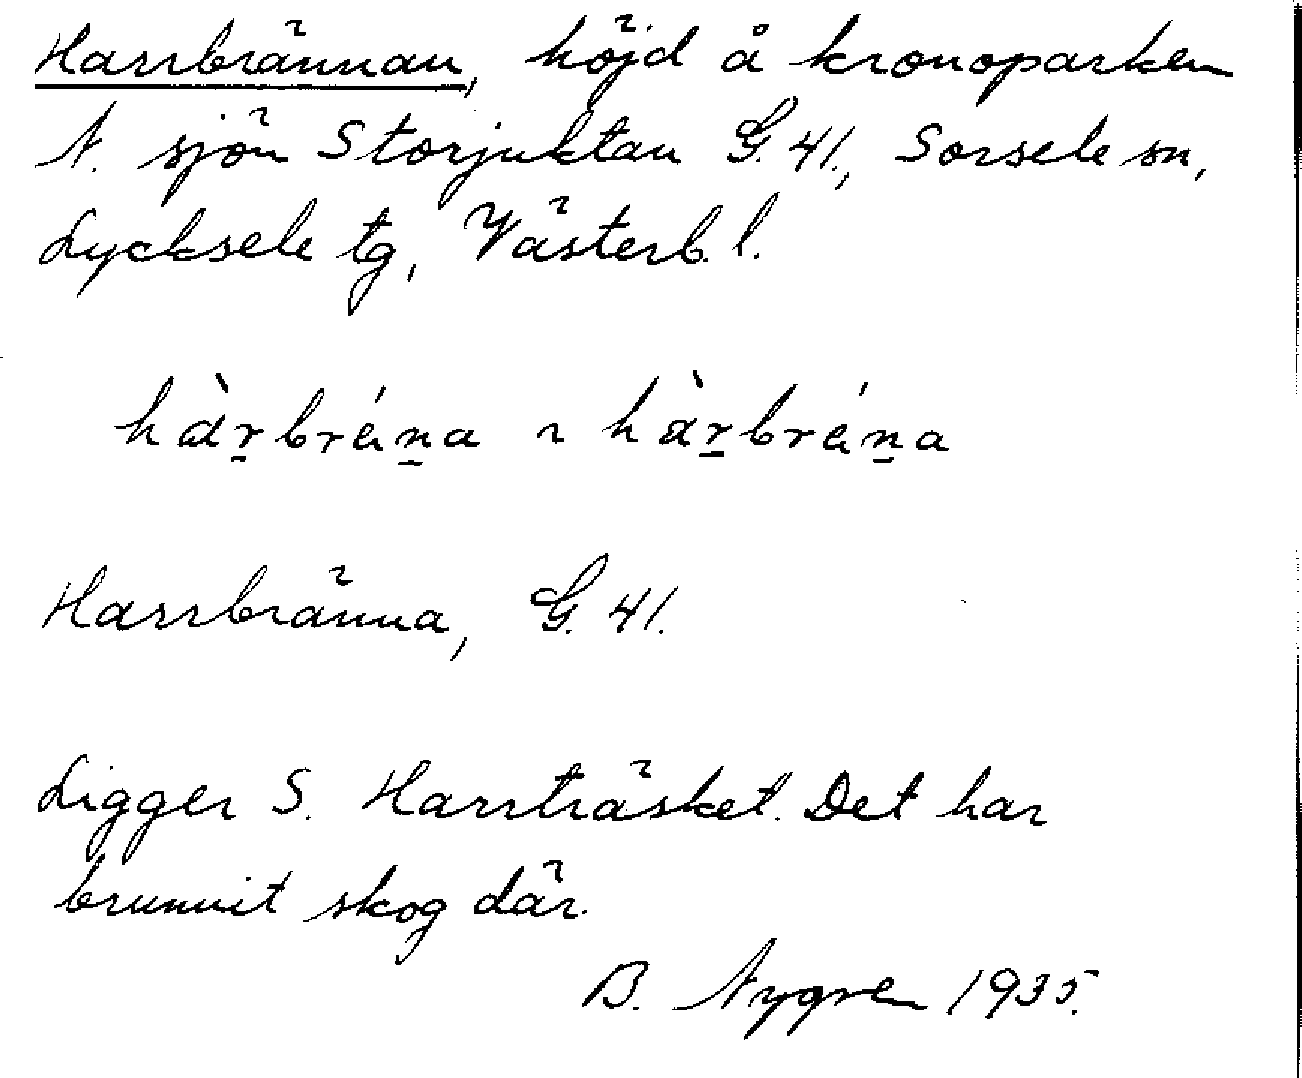 Harrbrännan, höjd å kronoparken
N. sjön Storjuktan G. 41., Sorsele sn,
Lycksele tg, Västerb. l.
hàr̠brán̠a ~ hàr̠brán̠a
Harrbränna, G. 41.
Ligger S. Harrträsket. Det har
brunnit skog där.
B. Nygren 1935.